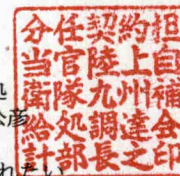 分任契約担
当官陸上自
衛隊九州補
給処調達会
計部長之印
処
彦
れたい